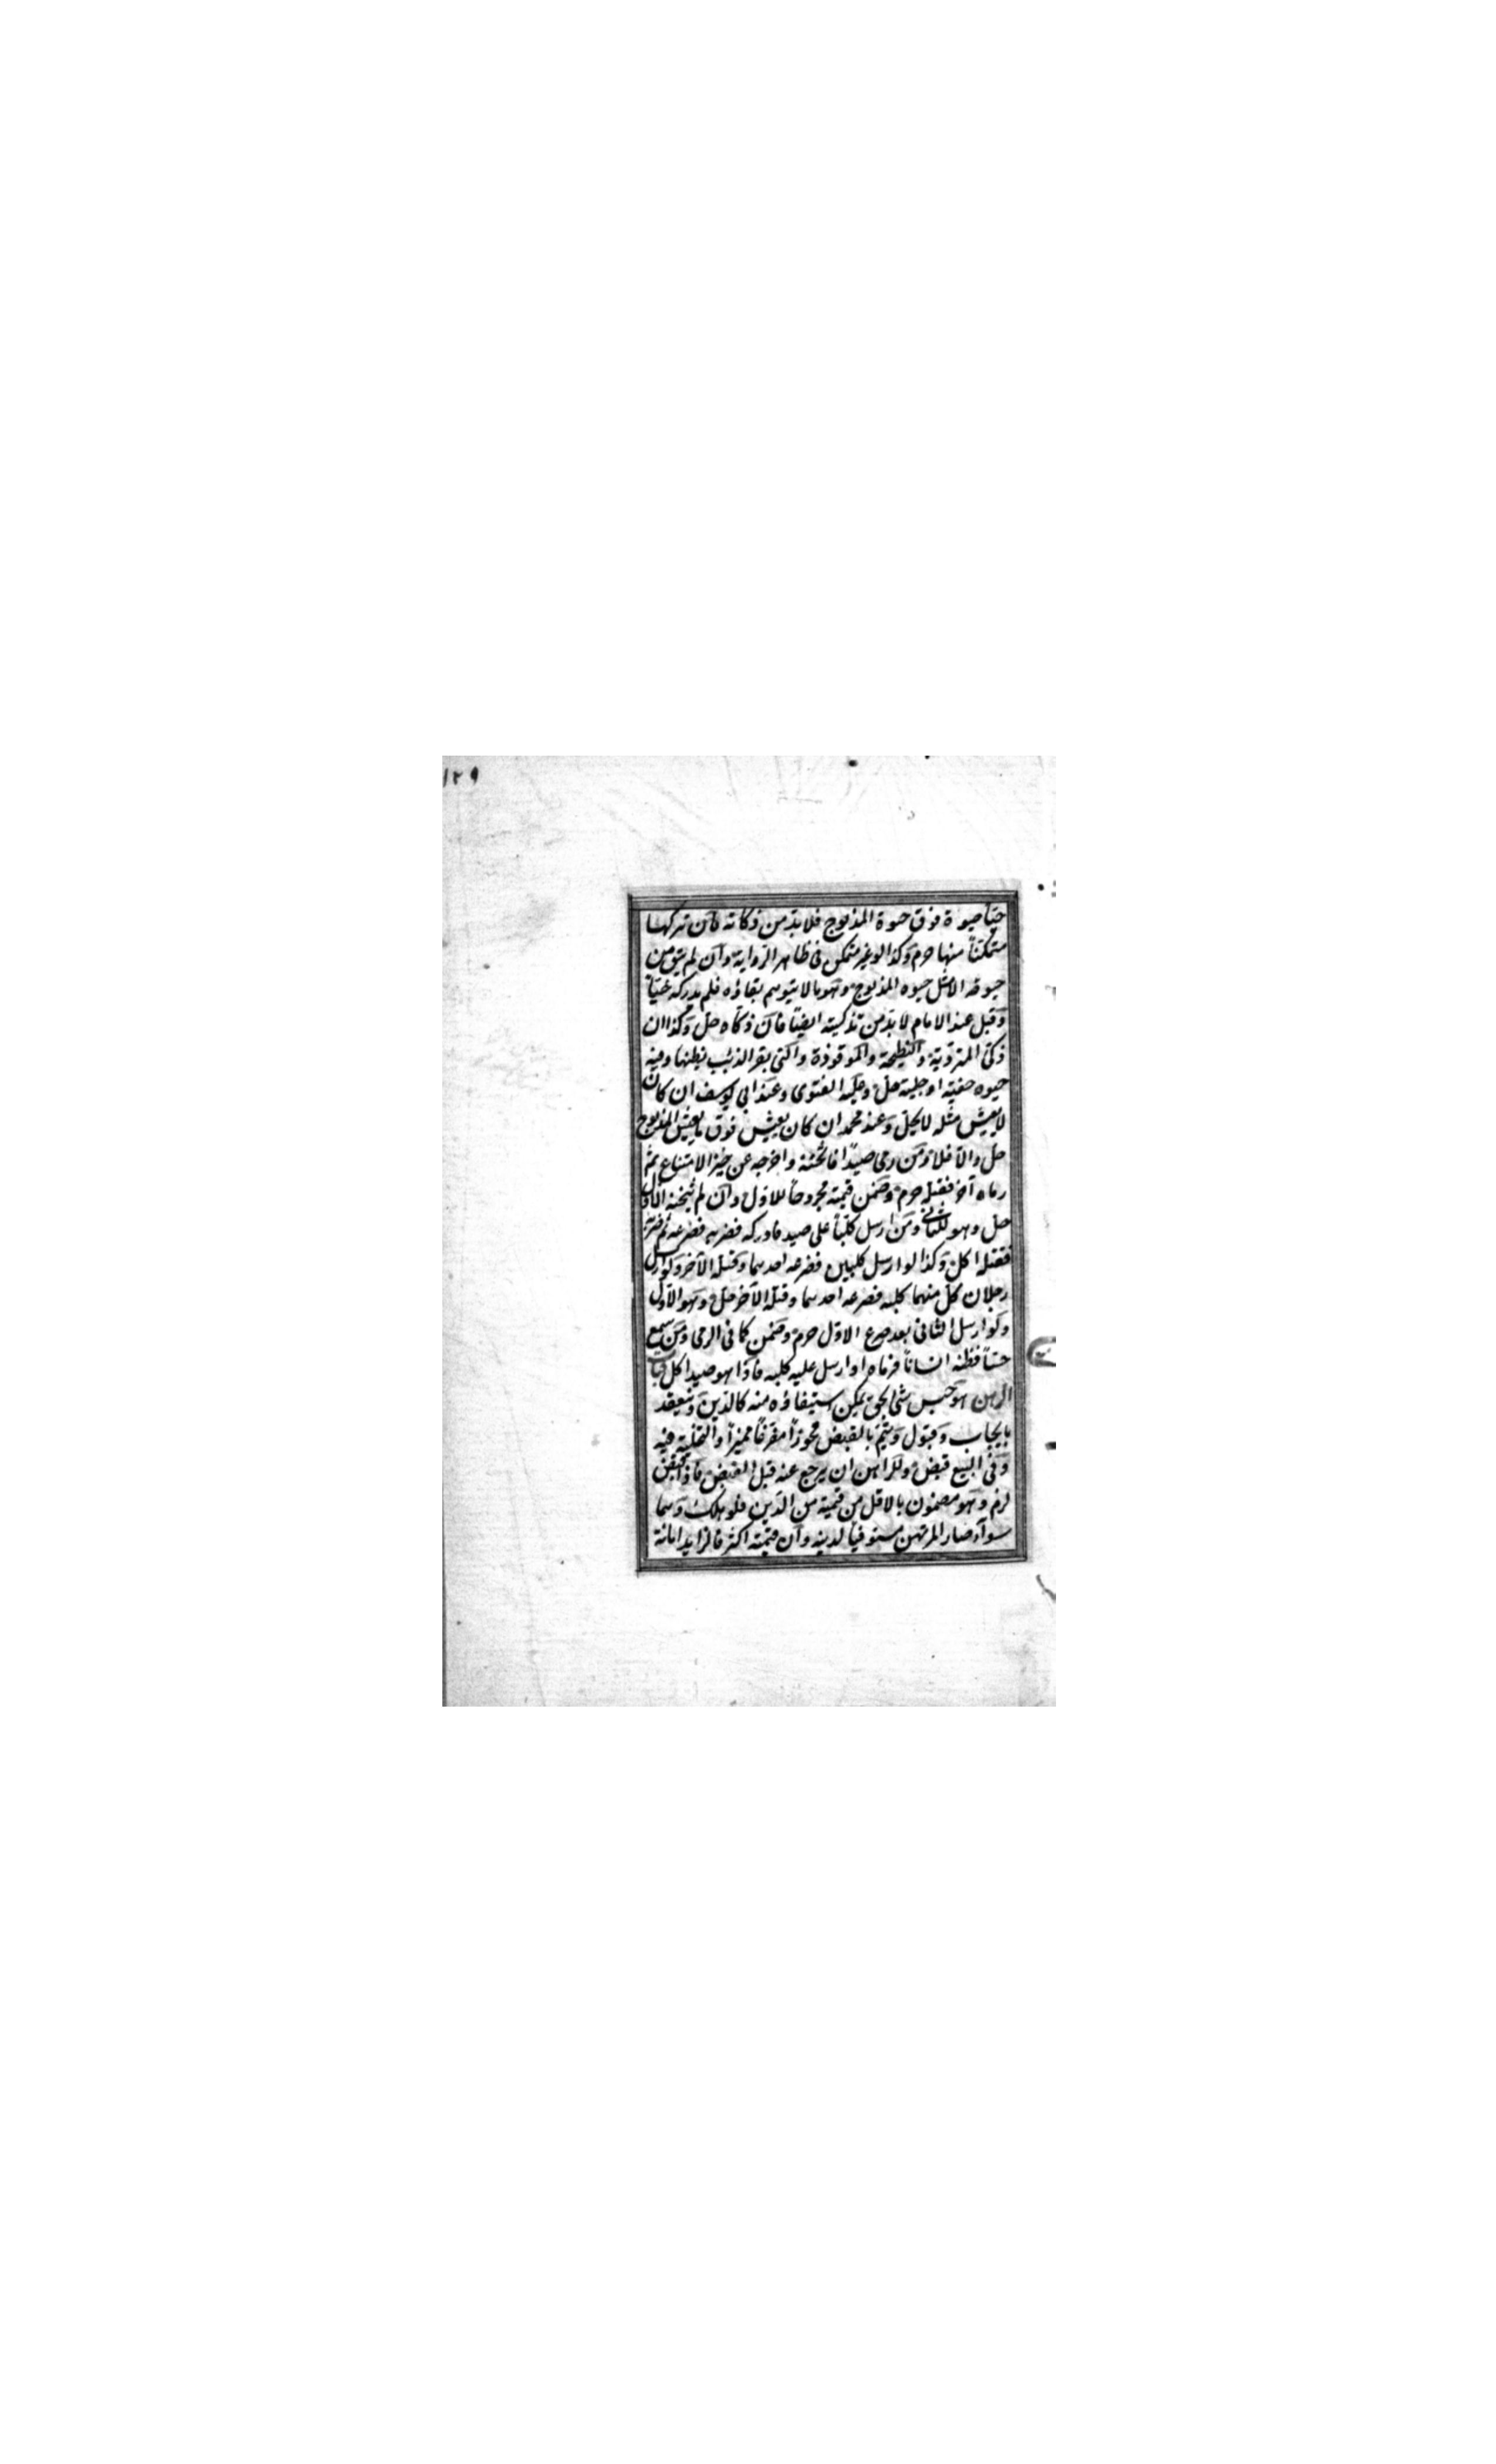 ١٢٩
حيًّا حيوة فوق حيوة المذبوح فلابدّ من ذكاته فان تركها
متمكنًا منها حرم وكذا لو غير متمكن فى ظاهر الرواية وان لم يبق من
حيوته الا مثل حيوه المذبوح وهو ما لا يتوهم بقاؤه فلم يدركه حيًّا
وقيل عند الامام لابدّ من تذكيته ايضًا فان ذكّاه حلّ وكذا ان
ذكّى المتردّية والنطيحة والموقوذة والتى بقر الذئب بطنها وفيه
حيوه خفيّه او جلية حلّ وعليه الفتوى وعند ابى يوسف ان كان
لا يعيش مثله لا يحلّ وعند محمد ان كان يعيش فوق ما يعيش المذبوح
حلّ والّا فلا ومن رمى صيدًا فاثخنه واخرجه عن حيز الامتناع ثمّ
رماه آخر فقتله حرم وضمن قيمته مجروحًا للاوّل وان لم يثخنه الاوّل
حلّ وهو للثانى ومن ارسل كلبًا على صيد فادركه فضربه فصرعه ثم ضربه
فقتله اكل وكذا لو ارسل كلبين فصرعه احدهما وقتله الآخر ولو ارسل
رجلان كلّ منهما كلبه فصرعه احدهما وقتله الآخر حلّ وهو للاوّل
ولو ارسل الثانى بعد صرع الاوّل حرم وضمن كما فى الرمى ومن سمع
حسًّا فظنه انسانًا فرماه او ارسل عليه كلبه فاذا هو صيد اكل كتاب
الرهن هو حبس شئ بحق يمكن استيفاؤه منه كالدّين وينعقد
بايجاب وقبول ويتمّ بالقبض محوزًا مفرّغًا مميزًا والتخلية فيه
وفى البيع قبض وللراهن ان يرجع عنه قبل القبض فاذا قبض
لزم وهو مضمون بالاقل من قيمته من الدّين فلو هلك وهما
سوآء صار المرتهن مستوفيًا لدينه وان قيمته اكثر فالزايد امانة